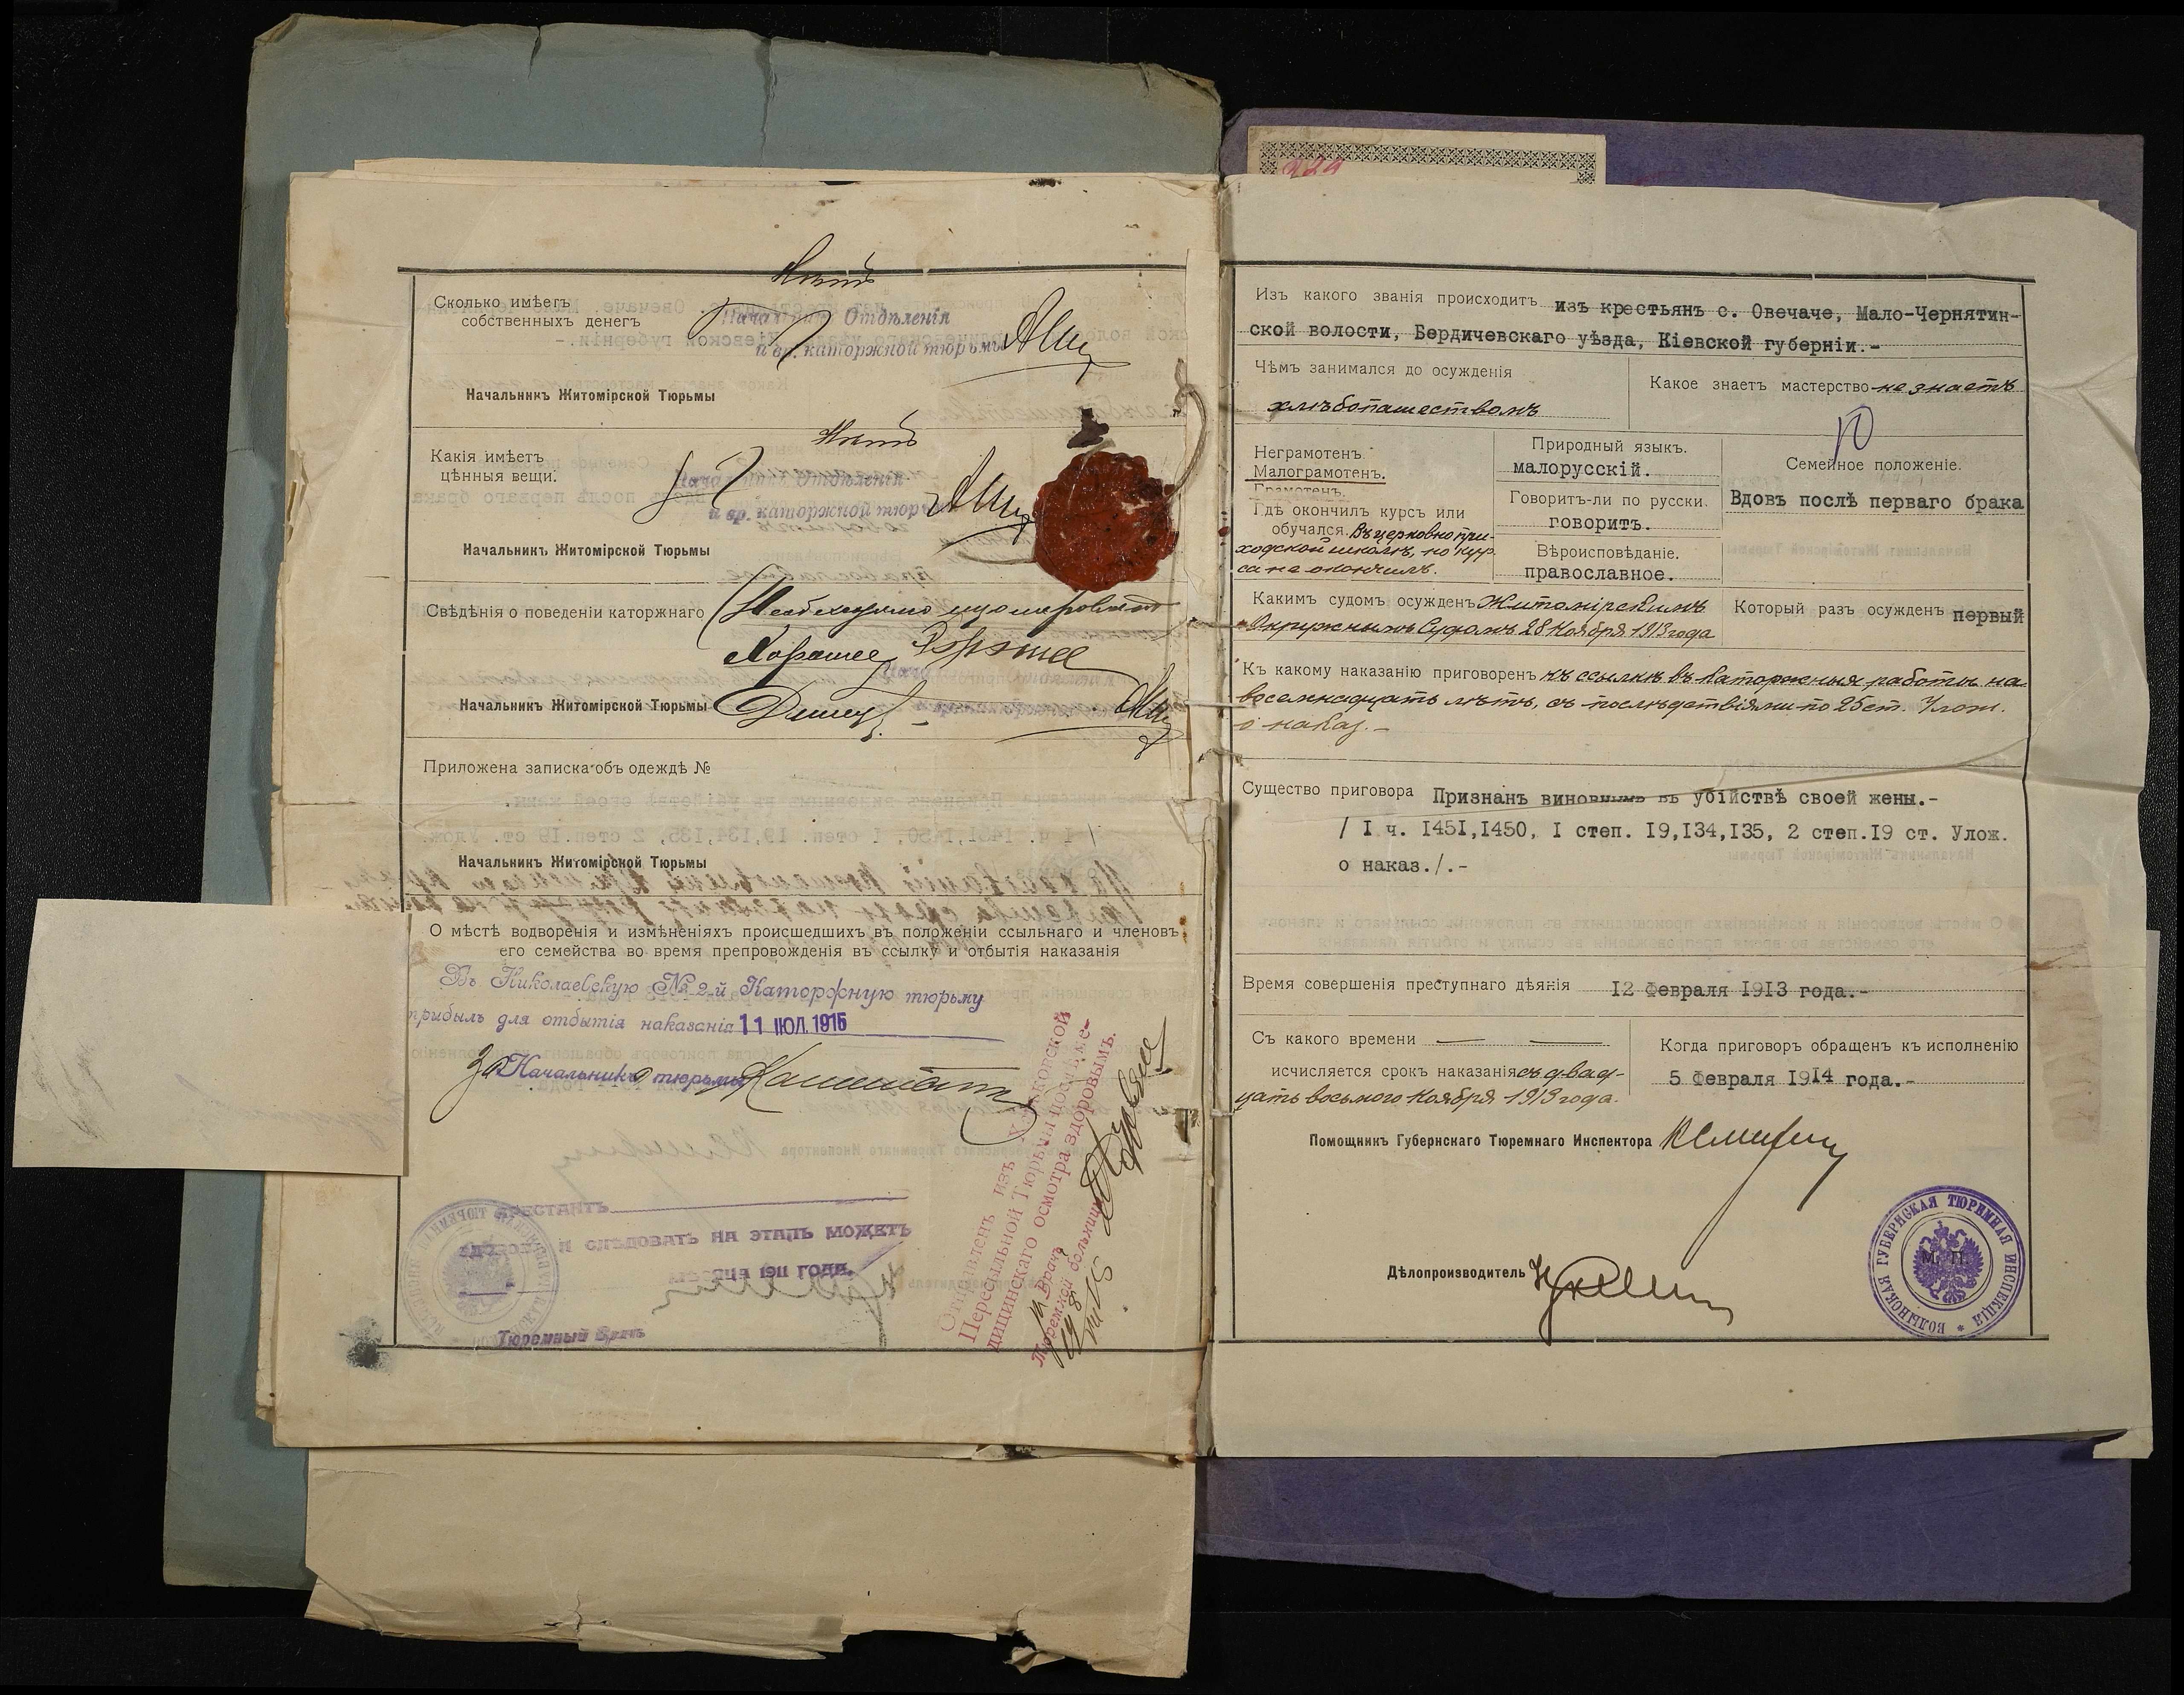 Нѣтъ
Сколько имѣетъ
собственныхъ денегъ
Отдѣленія
и вр. каторжной тюрьмы
Начальникъ Житомірской Тюрьмы
Нѣтъ
Какія имѣетъ
цѣнныя вещи.
Начальникъ Отдѣленія
и вр. каторжной тюрьмы
Начальникъ Житомірской Тюрьмы
Свѣдѣнія о поведеніи каторжнаго
Хорошее
Начальникъ Житомірской Тюрьмы
Приложена записка объ одеждѣ №
Начальникъ Житомірской Тюрьмы
О мѣстѣ водворенія и измѣненіяхъ происшедшихъ въ положеніи ссыльнаго и членовъ
его семейства во время препровожденія въ ссылку и отбытія наказанія
Въ Николаевскую № 2-й Каторжную тюрьму
прибылъ для отбытія наказанія 11 ІЮЛ. 1915
За Начальника тюрьмы
АРЕСТАНТЪ
здоровъ и слѣдовать на этапъ можетъ
мѣсяца 1911 года.
Тюремный Врачъ
Отправленъ изъ Харьковской
Пересыльной Тюрьмы послѣ ме-
дицинскаго осмотра здоровымъ.
Врачъ
Тюремной больницы
229
Изъ какого званія происходитъ изъ крестьянъ с. Овечаче, Мало-Чернятин-
ской волости, Бердичевскаго уѣзда, Кіевской губерніи.-
Чѣмъ занимался до осужденія
хлѣбопашествомъ
Какое знаетъ мастерство не знаетъ
Неграмотенъ.
Малограмотенъ.
Грамотенъ.
Гдѣ окончилъ курсъ или
обучался. Въ церковно при-
ходской школѣ, но кур
са не окончилъ.
Природный языкъ.
малорусскій.
Говоритъ-ли по русски.
говоритъ.
Вѣроисповѣданіе.
православное.
Семейное положеніе.
Вдовъ послѣ перваго брака
Какимъ судомъ осужденъ Житомірскимъ
Окружнымъ Судомъ 28 Ноября 1913 года
Который разъ осужденъ первый
Къ какому наказанію приговоренъ къ ссылкѣ въ каторжныя работы на
восемнадцать лѣтъ, съ послѣдствіями по 25 ст. Улож.
о наказ.-
Существо приговора Признанъ виновнымъ въ убійствѣ своей жены.-
/ I ч. I45I,I450, I степ. I9,I34,I35, 2 степ.I9 ст. Улож.
о наказ./.-
Время совершенія преступнаго дѣянія I2 Февраля I9I3 года.-
Съ какого времени
исчисляется срокъ наказанія съ двад-
цать восьмого Ноября 1913 года.
Когда приговоръ обращенъ къ исполненію
5 Февраля I9I4 года.-
Помощникъ Губернскаго Тюремнаго Инспектора
Дѣлопроизводитель
ВОЛЫНСКАЯ ГУБЕРНСКАЯ ТЮРЕМНАЯ ИНСПЕКЦІЯ
М. П.